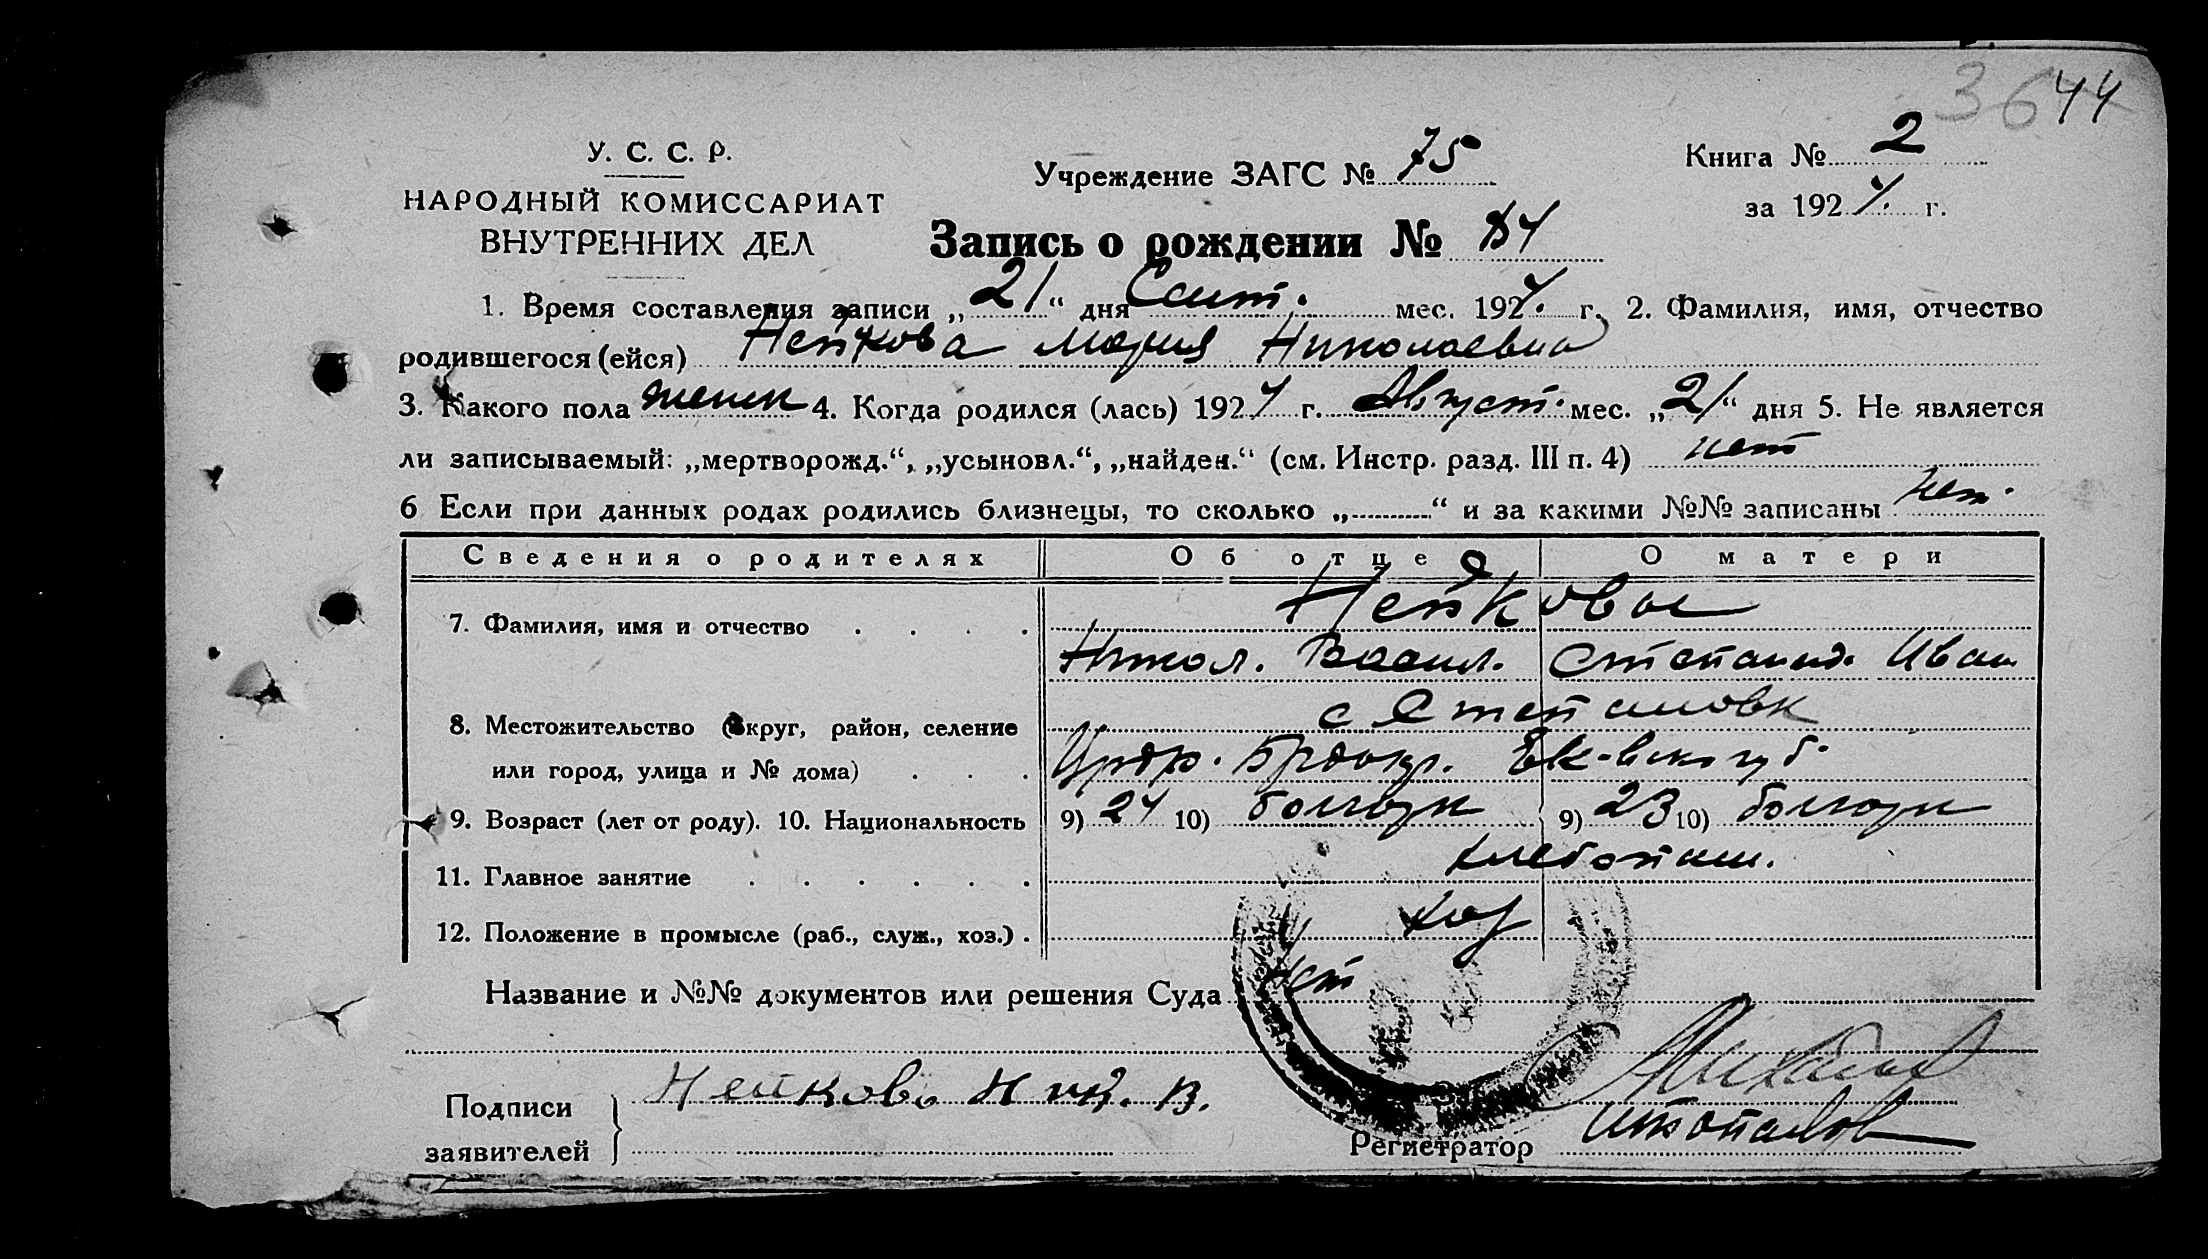 3644
У. С. С. Р.
НАРОДНЫЙ КОМИССАРИАТ
ВНУТРЕННИХ ДЕЛ
Учреждение ЗАГС № 75
Книга № 2
за 192 4. г.
Запись о рождении № 84
1. Время составления записи „21“ дня Сент. мес. 1924. г. 2. Фамилия, имя, отчество
родившегося (ейся) Нейкова Мария Николаевна
3. Какого пола женск 4. Когда родился (лась) 1924 г. Август. мес. „21“ дня 5. Не является
ли записываемый: „мертворожд.“, „усыновл.“, „найден.“ (см. Инстр. разд. III п. 4) нет
6 Если при данных родах родились близнецы, то сколько „ “ и за какими №№ записаны нет.
Сведения о родителях Об отце О матери
7. Фамилия, имя и отчество Нейковы
Никол. Васил. Степанид. Иван
с Степановк
8. Местожительство (Округ, район, селение
или город, улица и № дома)
9. Возраст (лет от роду). 10. Национальность 9) 24 10) болгары 9) 23 10) болгары
11. Главное занятие хлебопаш.
12. Положение в промысле (раб., служ., хоз.) хоз
Название и №№ документов или решения Суда нет
Подписи
заявителей
Нейков Ник. В.
Регистратор